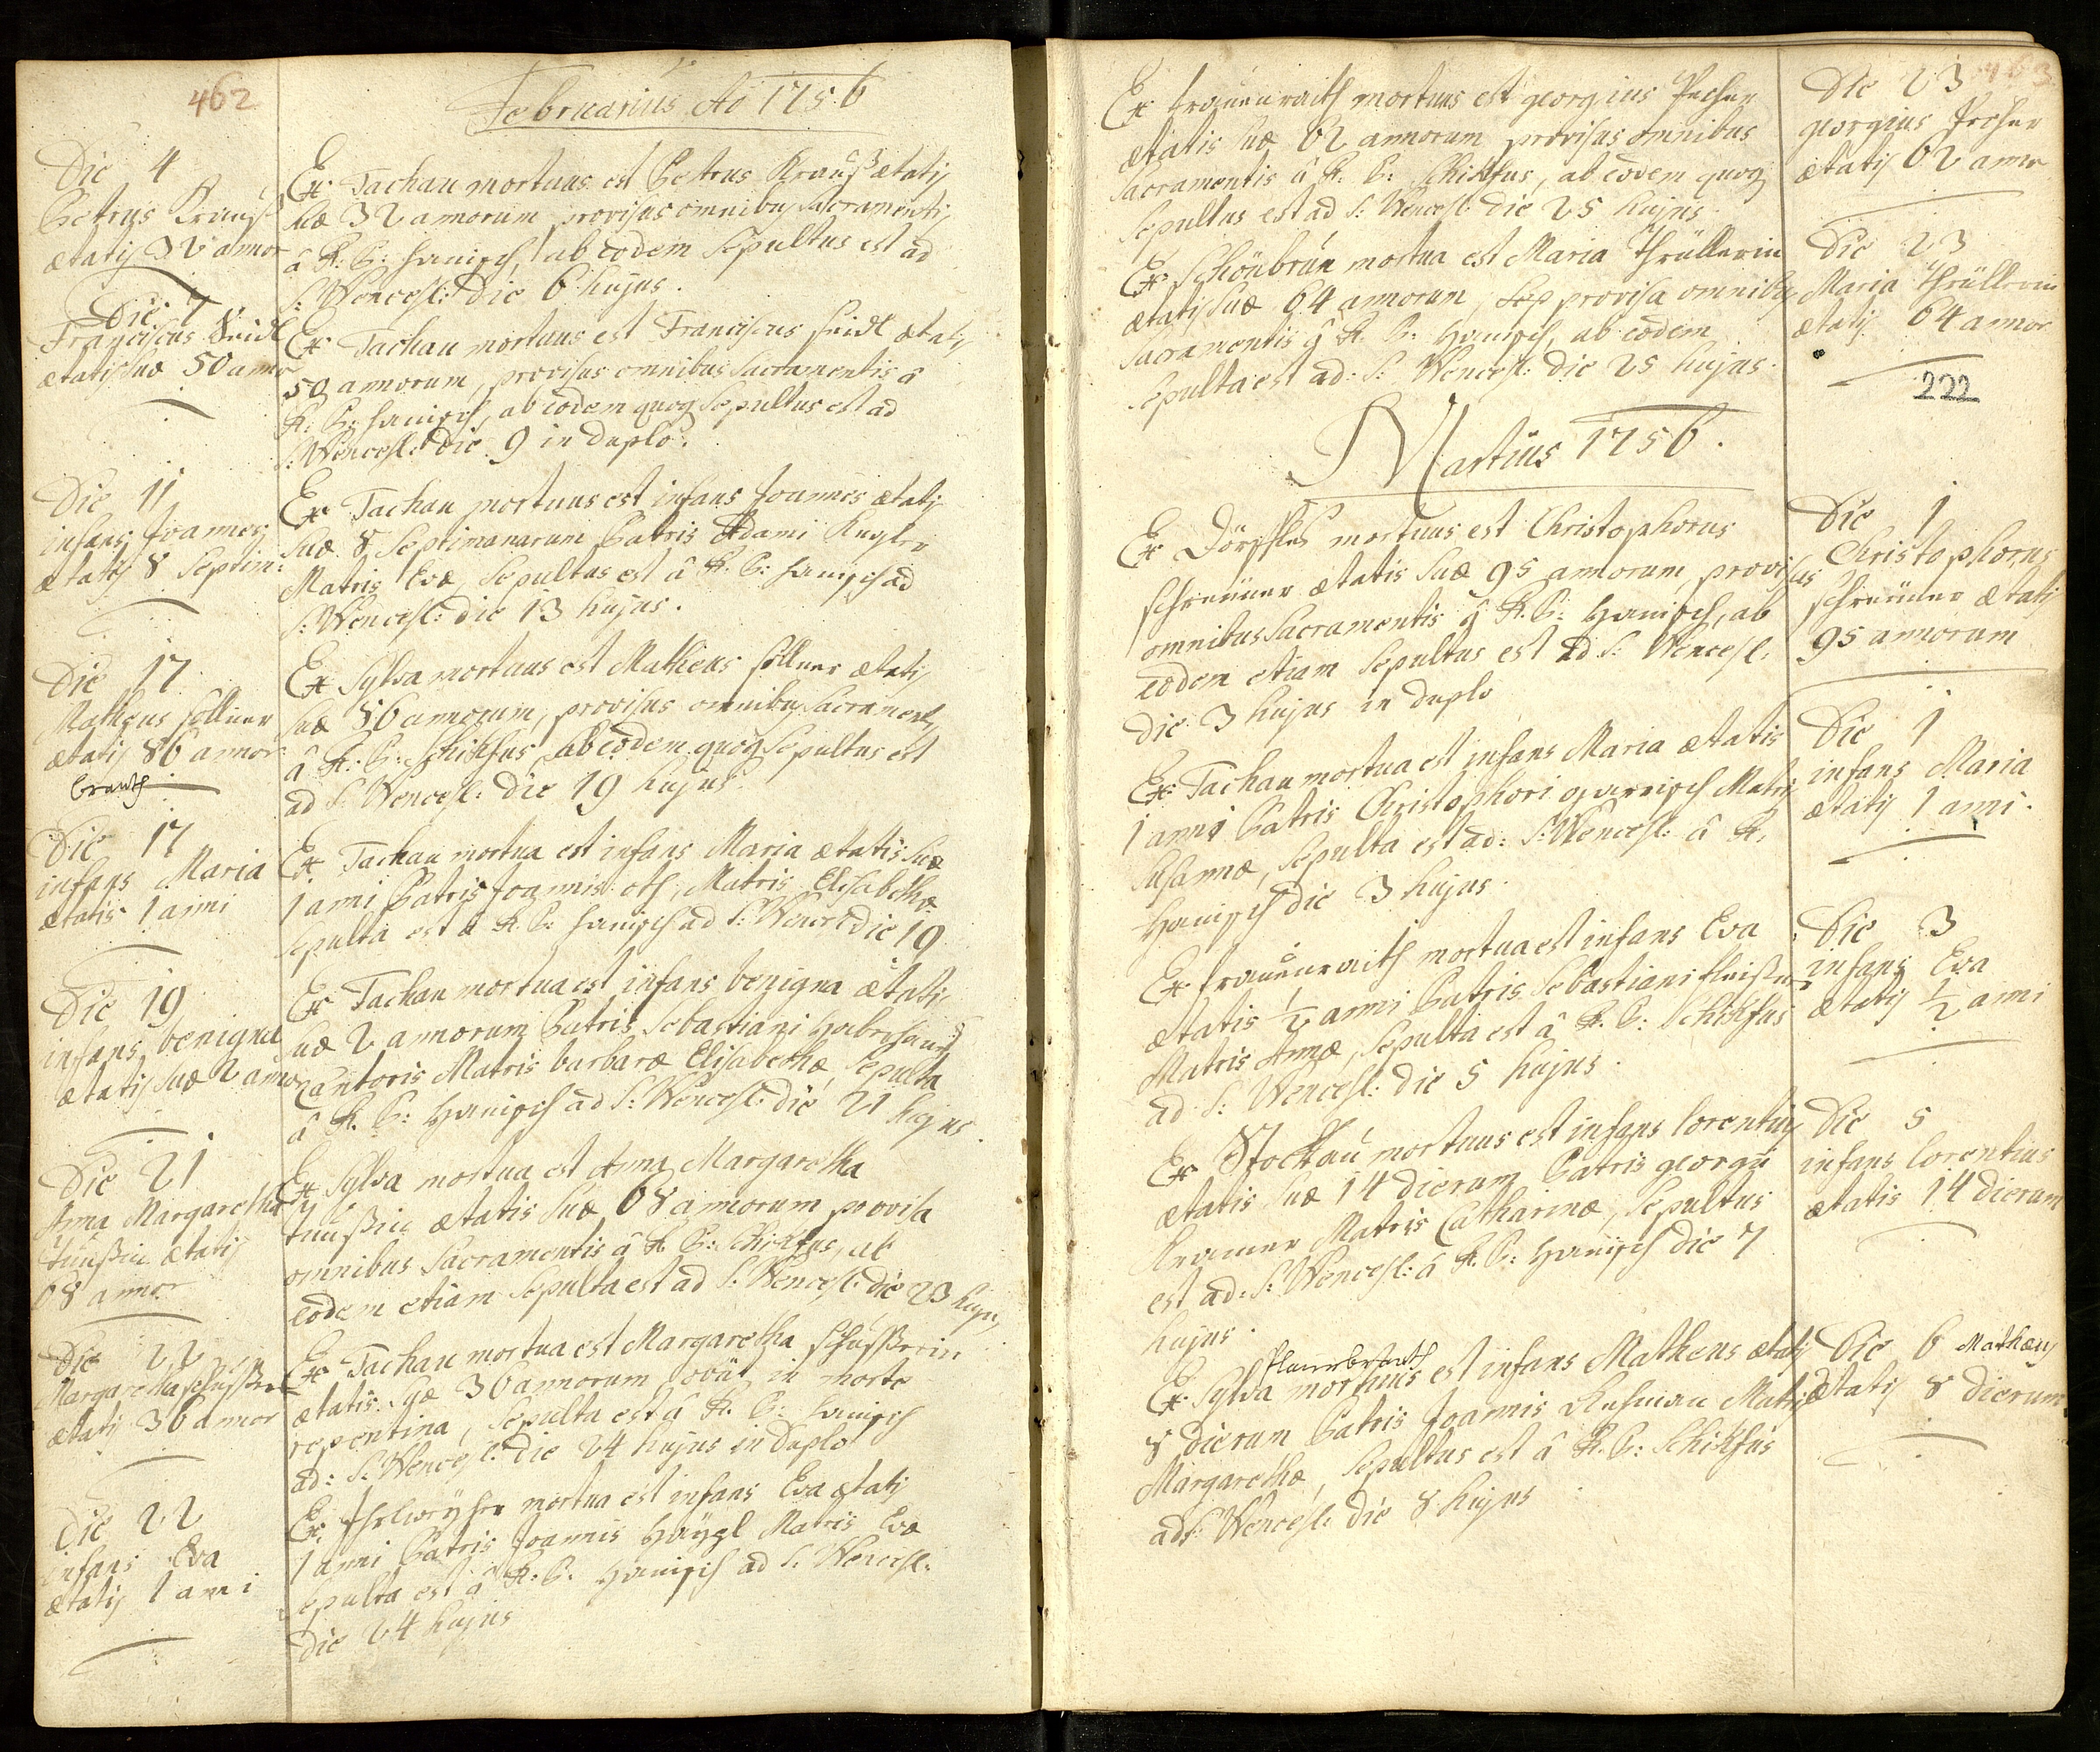 462
Februarius Aō 1756
Die 4
Petrus Krauß
ætatis 32 annor
Ex Tachau mortuus est Petrus Krauß ætatis
suæ 32 annorum provisus omnibus Sacramentis
â R. P: Hanisch, ab eodem Sepultus est ad
S: Wencesl: die 6 hujus.
Die 7
Franciscus Seidl
ætatis suæ 50 annor
Ex Tachau mortuus est Franciscus Seidl ætatis
50 annorum, provisus omnibus Sacramentis â
R. P: Hanisch, ab eodem quoq Sepultus est ad
S: Wencesl: die 9 in duplo.
Die 11
infans Joannes
ætatis 8 Septim:
Ex Tachau mortuus est infans Joannes ætatis
suæ 8 Septimanarum Patris Adami Kugler
Matris Evæ, Sepultus est â R. P: Hanisch ad
S: Wencesl: die 13 hujus.
Die 17
Matheus
ætatis 86 annor
brandt
Ex Sylva mortuus est Matheus ætatis
suæ 86 annorum, provisus omnibus Sacramentis
â R. P: Schikfus, ab eodem quoq Sepultus est
ad S. Wencesl: die 19 hujus
Die 17
infans Maria
ætatis 1 anni
Ex Tachau mortua est infans Maria ætatis suæ
1 anni Patris Joannis oth, Matris Elisabethæ
Sepulta est â R. P: Hanisch ad S: Wencesl die 19
Die 19
infans benigna
ætatis suæ 2 anno
Ex Tachau mortua est infans benigna ætatis
suæ 2 annorum Patris Sebastiani
Cantoris Matris barbaræ Elisabethæ, Sepulta
â R. P: Hanisch ad S: Wencesl: die 21 hujus.
Die 21
Anna Margaretha
ætatis
68 annor
Ex Sylva mortua est Anna Margaretha
ætatis suæ 68 annorum provisa
omnibus Sacramentis â R. P: Schikfus, ab
eodem etiam Sepulta est ad S: Wencesl: die 23 hujus
Die 22
Margaretha
ætatis 36 annor
Ex Tachau mortua est Margaretha
ætatis suæ 36 annorum in morte
repentina, Sepulta est â R. P: Hanisch
ad: S: Wencesl: die 24 hujus in duplo
Die 22
infans Eva
ætatis 1 anni
Ex mortua est infans Eva ætatis
1 anni Patris Joannis Haygl Matris Evæ
Sepulta est â R: P. Hanisch ad S. Wencesl:
die 24 hujus
463
Ex frauenraith mortuus est georgius
ætatis suæ 62 annorum provisus omnibus
Sacramentis â R. P: Schikfus, ab eodem quoq
Sepultus est ad S: Wencesl: die 25 hujus
Die 23
georgius
ætatis 62 anno
Ex Schönbrun mortua est Maria
ætatis suæ 64 annorum, provisa omnibus
Sacramentis â R. P: Hanisch, ab eodem
Sepulta est ad: S: Wencesl: die 25 hujus.
Die 23
Maria
ætatis 64 annor
222
Martius 1756.
Ex mortuus est Christophorus
ætatis suæ 95 annorum, provisus
omnibus Sacramentis â R. P: Hanisch, ab
eodem etiam Sepultus est ad S: Wencesl:
die 3 hujus in duplo
Die 1
Christophorus
ætatis
95 annorum
Ex Tachau mortua est infans Maria ætatis
1 anni Patris Christophori Matris
Susannæ, Sepulta est ad: S: Wencesl: â R.
Hanisch die 3 hujus.
Die 1
infans Maria
ætatis 1 anni.
Ex frauenraith mortua est infans Eva
ætatis ½ anni Patris Sebastiani
Matris Annæ, Sepulta est â R. P: Schikfus
ad S: Wencesl: die 5 hujus.
Die 3
infans Eva
ætatis ½ anni
Ex Stockau mortuus est infans lorentius
ætatis suæ 14 dierum Patris georgii
Kramer Matris Catharinæ, Sepultus
est ad: S: Wencesl: â R. P: Hanisch die 7
hujus.
Die 5
infans lorentius
ætatis 14 dierum
Ex Sylva mortuus est infans Matheus ætatis
8 dierum Patris Joannis Matris
Margarethæ, Sepultus est â R. P: Schikfus
ad S: Wencesl: die 8 hujus
Die 6 Mathæus
ætatis 8 dierum